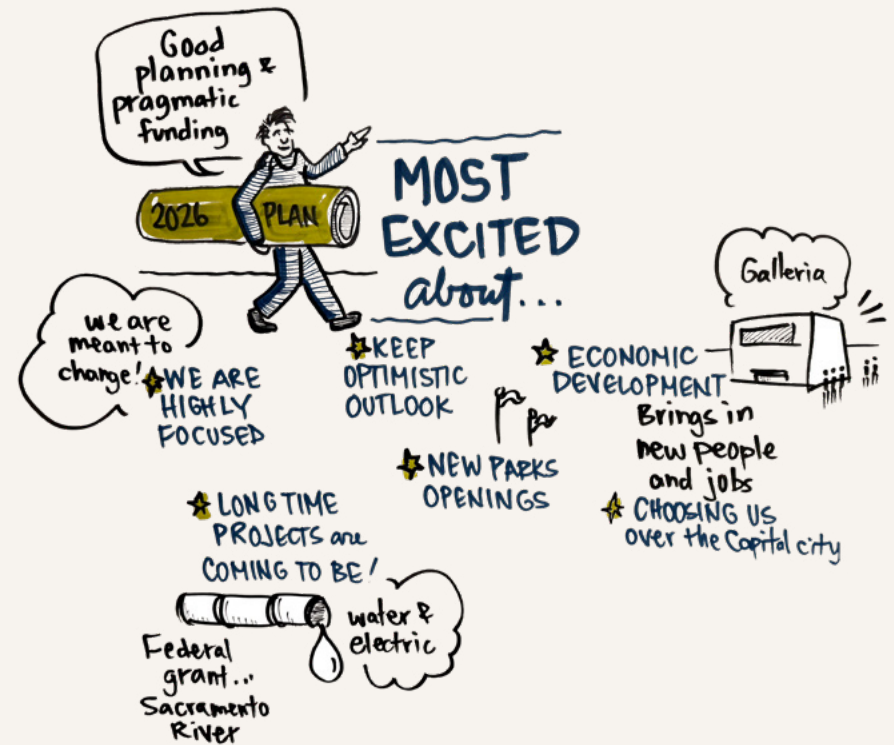 Good
planning &
pragmatic
funding
2026 PLAN
MOST
EXCITED
about...
Galleria
we are
meant to
change!
WE ARE
HIGHLY
FOCUSED
KEEP
OPTIMISTIC
OUTLOOK
ECONOMIC
DEVELOPMENT
Brings in
new people
and jobs
NEW PARKS
OPENINGS
CHOOSING US
over the Capital city
LONG TIME
PROJECTS are
COMING TO BE!
water &
electric
Federal
grant...
Sacramento
River